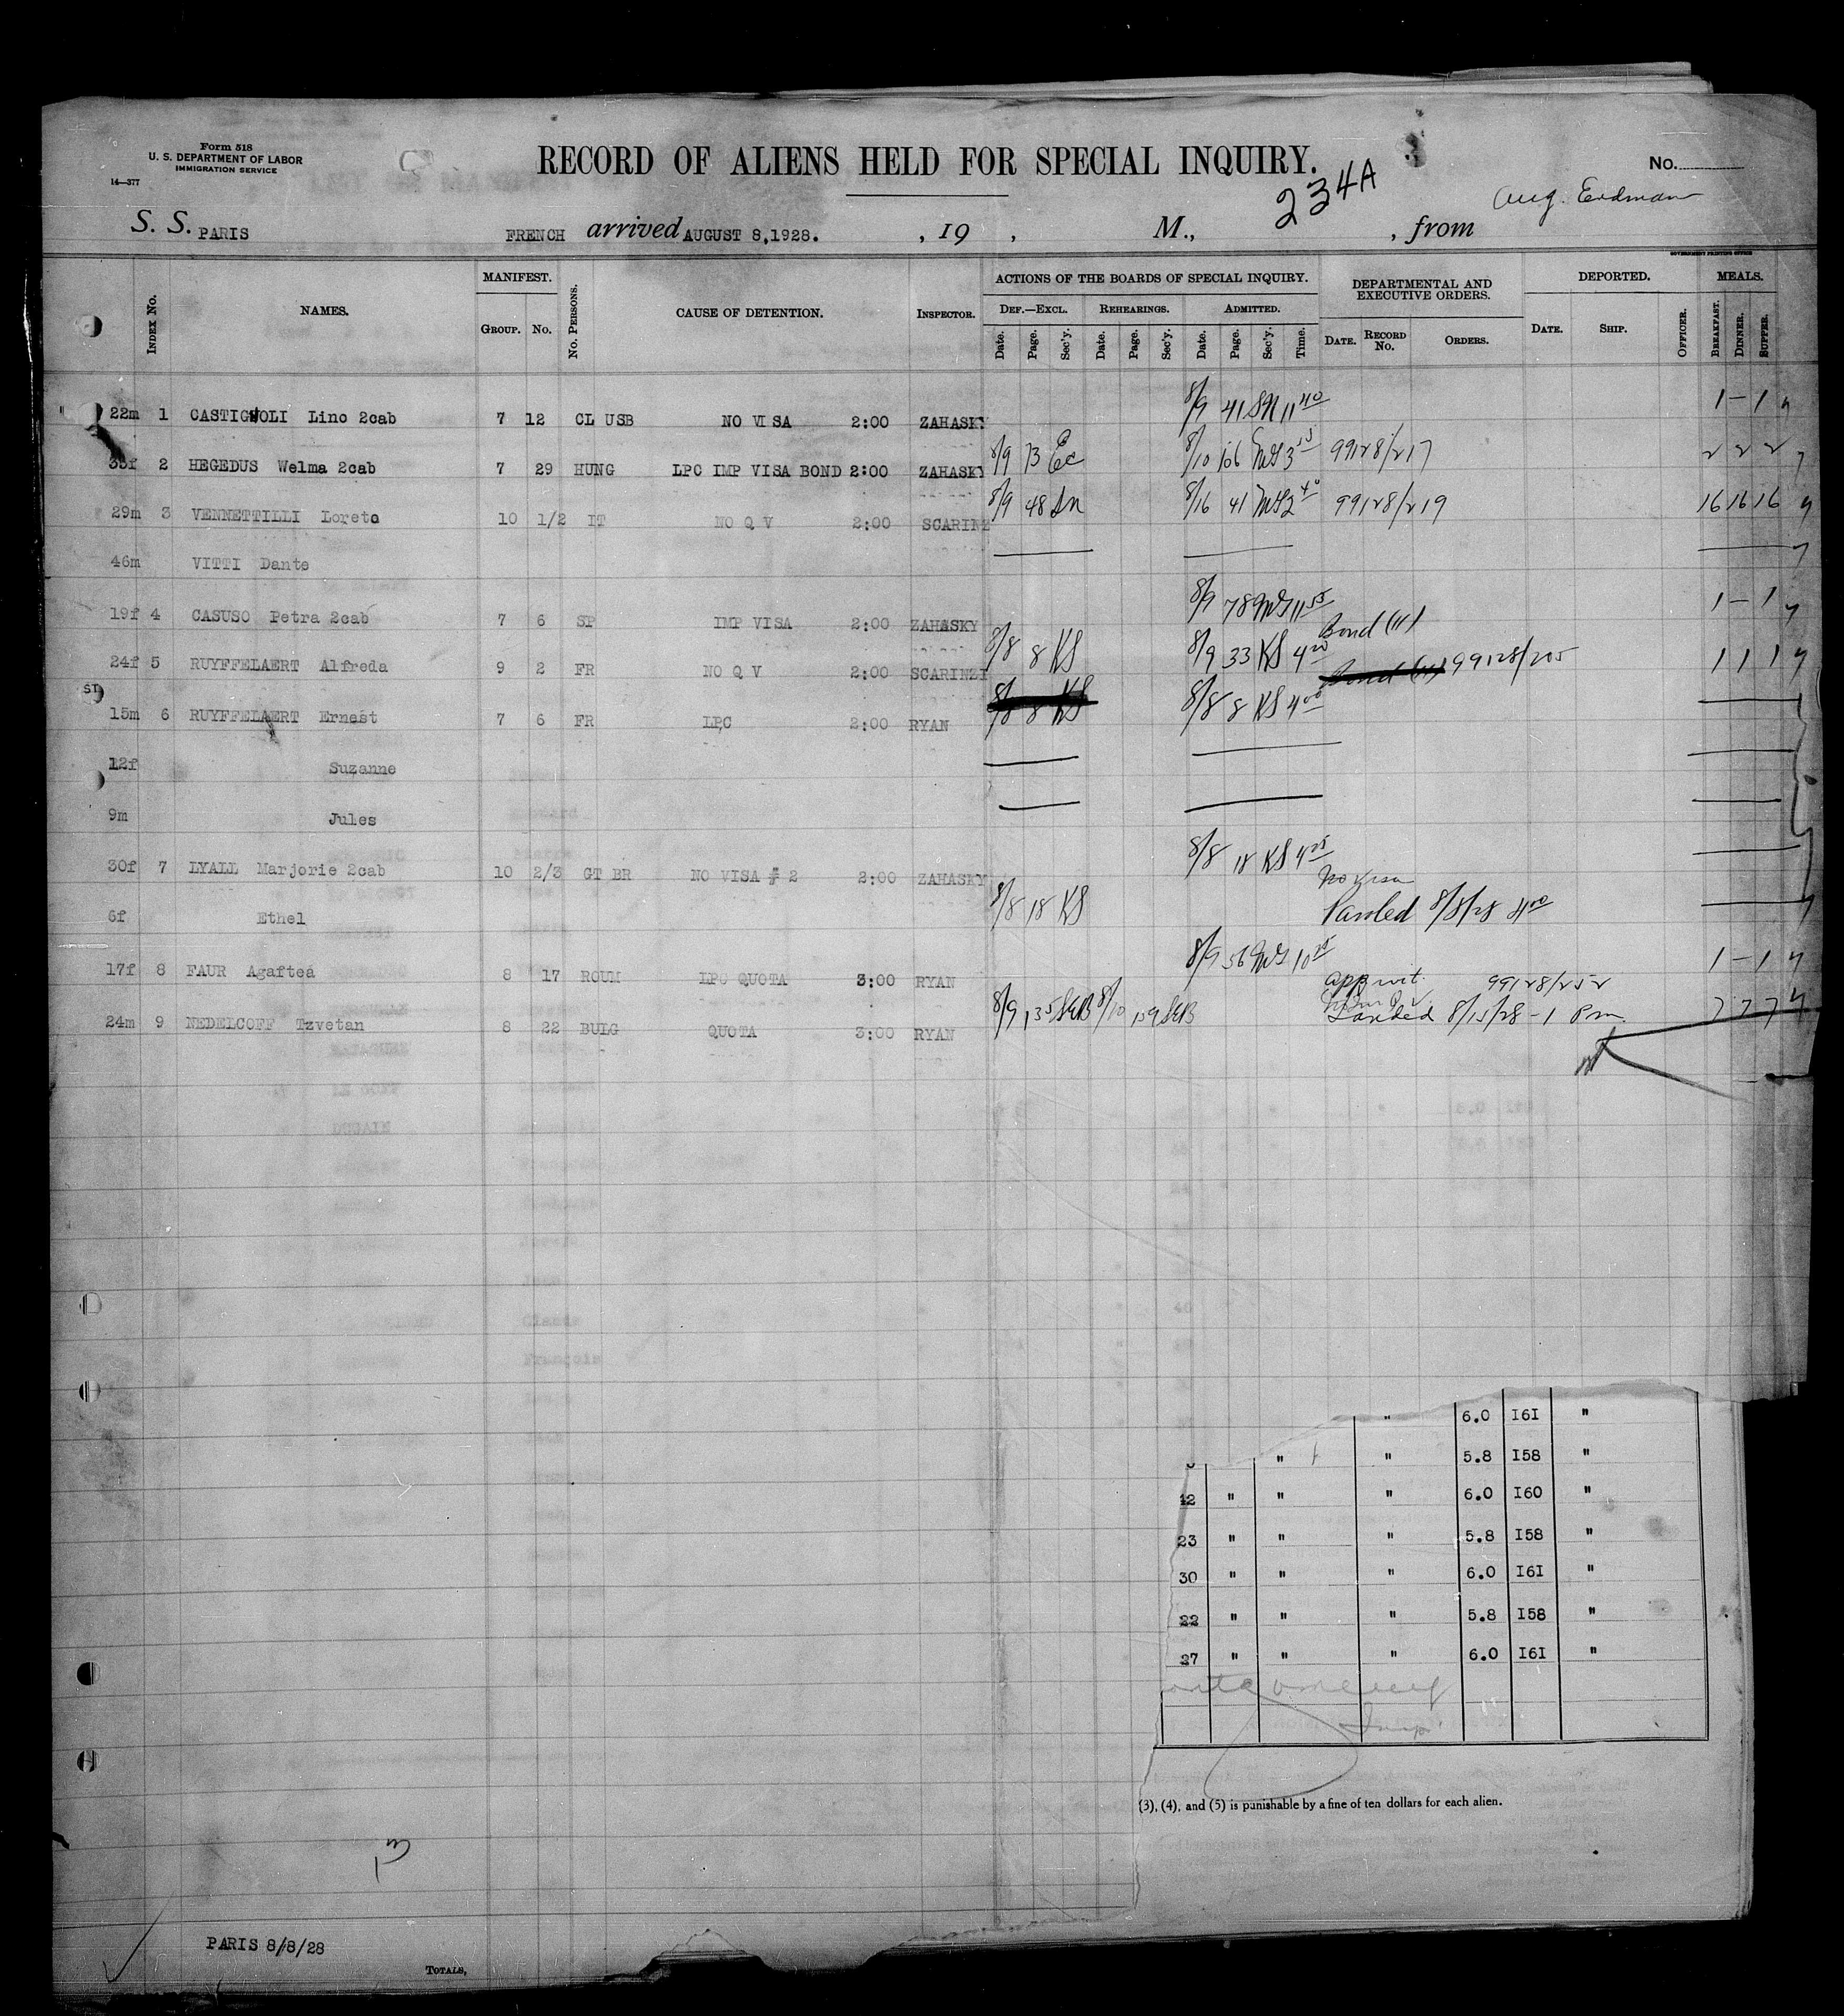 Form 518
U. S. DEPARTMENT OF LABOR
IMMIGRATION SERVICE
14—377
RECORD OF ALIENS HELD FOR SPECIAL INQUIRY.
No.
234A
Aug. Erdman
S. S. PARIS FRENCH arrived AUGUST 8,1928. , 19 , M., , from
GOVERNMENT PRINTING OFFICE
INDEX NO. NAMES. MANIFEST. GROUP. NO. NO. PERSONS. CAUSE OF DETENTION. INSPECTOR. ACTIONS OF THE BOARDS OF SPECIAL INQUIRY. DEF.—EXCL. Date. Page. Sec'y. REHEARINGS. Date. Page. Sec'y. ADMITTED. Date. Page. Sec'y. Time. DEPARTMENTAL AND EXECUTIVE ORDERS. DATE. RECORD NO. ORDERS. DEPORTED. DATE. SHIP. OFFICER. MEALS. BREAKFAST. DINNER. SUPPER.
22m 1 CASTIGNOLI Lino 2cab 7 12 CL USB NO VISA 2:00 ZAHASKY 8/9 41 SN 11 40 1 - 1
35f 2 HEGEDUS Welma 2cab 7 29 HUNG LPC IMP VISA BOND 2:00 ZAHASKY 8/9 13 Ec 8/10 106 3 99128/217 2 2 2
29m 3 VENNETTILLI Loreto 10 1/2 IT NO Q V 2:00 SCARINZ 8/9 48 8/16 41 2 40 99128/219 16 16 16
46m VITTI Dante
19f 4 CASUSO Petra 2cab 7 6 SP IMP VISA 2:00 ZAHASKY 8/9 78 11 55 1 - 1
24f 5 RUYFFELAERT Alfreda 9 2 FR NO Q V 2:00 SCARINZI 8/8 8 KS 8/9 33 KS 4 20 Bond (11) 99128/205 1 1 1
ST
15m 6 RUYFFELAERT Ernest 7 6 FR LPC 2:00 RYAN 8/8 8 KS 8/8 8 KS 4 00
12f Suzanne
9m Jules
30f 7 LYALL Marjorie 2cab 10 2/3 GT BR NO VISA # 2 2:00 ZAHASKY 8/8 18 KS 4 25
6f Ethel 8/8 18 KS No visa Paroled 8/8/28 4 00
17f 8 FAUR Agaftea 8 17 ROUM LPC QUOTA 3:00 RYAN 8/9 56 10 25 1 - 1
24m 9 NEDELCOFF Tzvetan 8 22 BULG QUOTA 3:00 RYAN 8/9 135 SEB 8/10 159 SEB 99128/252 Landed 8/15/28 - 1 Pm. 7 7 7
" 6.0 I6I "
" " 5.8 I58 "
12 " " " 6.0 I60 "
23 " " " 5.8 I58 "
30 " " " 6.0 I6I "
22 " " " 5.8 I58 "
27 " " " 6.0 I6I "
(3), (4), and (5) is punishable by a fine of ten dollars for each alien.
PARIS 8/8/28
TOTALS,